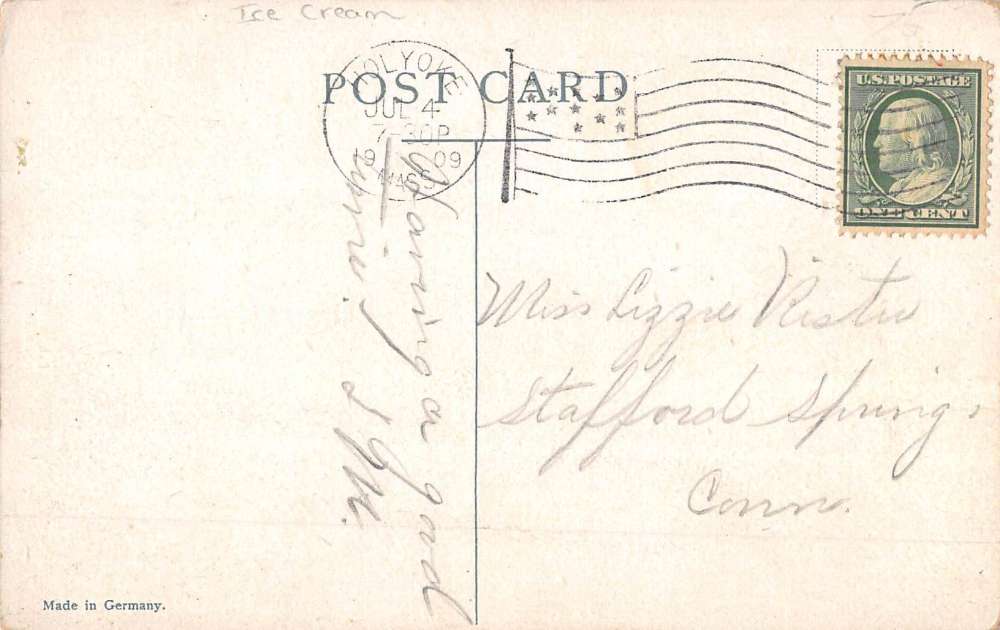 Ice Cream
POST CARD
HOLYOKE
JUL 4
7-30P
1909
MASS
U.S. POSTAGE
ONE CENT
Having a good
time.
Miss Lizzie
Stafford Springs
Conn.
Made in Germany.